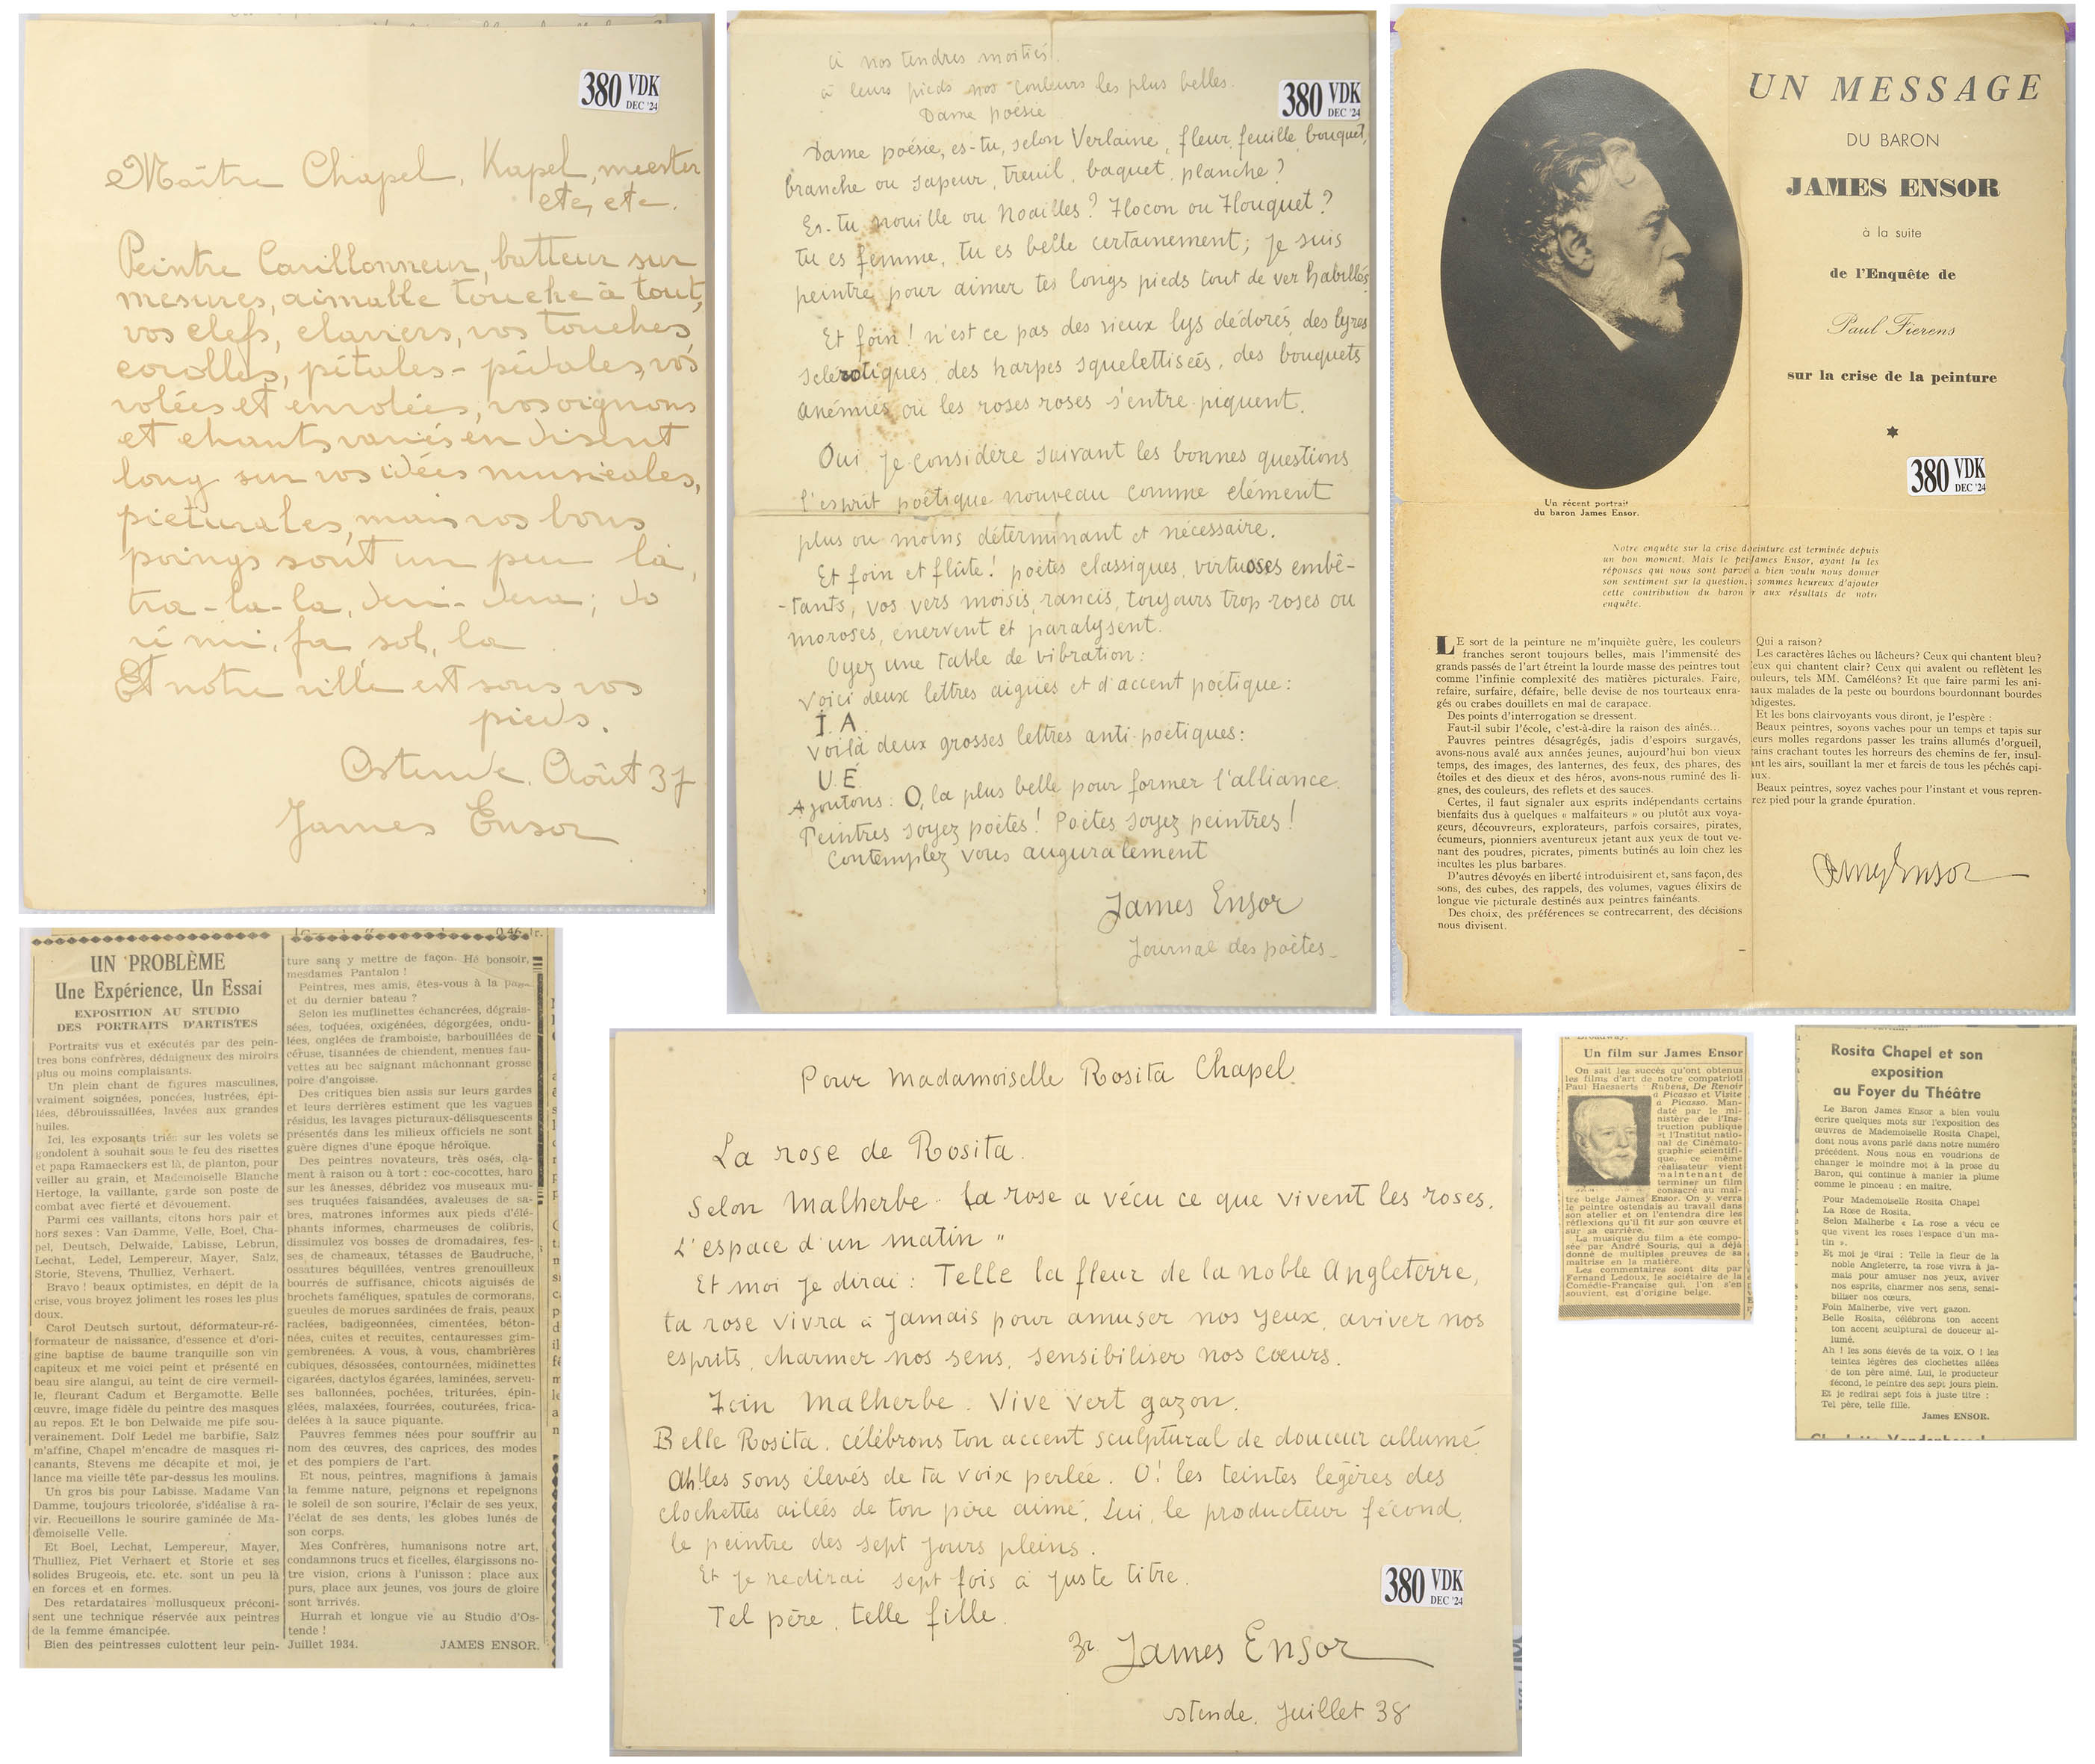 380 VDK
DEC '24
Maître Chapel, Kapel, meester
etc, etc.
Peintre Carillonneur, batteur sur
mesures, aimable touche à tout,
vos clefs, claviers, vos touches,
corolles, pétales - pédales, vos
volées et envolées, vos oignons
et chants variés en disent
long sur vos idées musicales,
picturales, mais vos bons
poings sont un peu là,
tra-la-la,
ré mi, fa, sol, la
Et notre ville est sous vos
pieds.
Ostende. Août 37
James Ensor
à nos tendres moitiés.
à leurs pieds nos couleurs les plus belles.
Dame poésie
380 VDK
DEC '24
Dame poésie, es-tu, selon Verlaine, fleur, feuille, bouquet,
branche ou sapeur, treuil, baquet, planche?
Es-tu nouille ou Noailles? Flocon ou Flouquet?
tu es femme, tu es belle certainement; je suis
peintre pour aimer tes longs pieds tout de ver habillés
Et foin! n'est ce pas des vieux lys dédorés, des lyres
sclérotiques, des harpes squelettisées, des bouquets
anémiés ou les roses roses s'entre-piquent.
Oui, je considère suivant les bonnes questions
l'esprit poétique nouveau comme élément
plus ou moins déterminant et nécessaire.
Et foin et flûte! poètes classiques, virtuoses embê-
-tants, vos vers moisis, rancis, toujours trop roses ou
moroses, énervent et paralysent.
Oyez une table de vibration:
Voici deux lettres aigües et d'accent poétique:
I. A.
Voilà deux grosses lettres anti-poétiques:
U. E.
Ajoutons: O, la plus belle pour former l'alliance.
Peintres soyez poètes! Poètes soyez peintres!
Contemplez vous auguralement
James Ensor
Journal des poètes_
UN MESSAGE
DU BARON
JAMES ENSOR
à la suite
de l'Enquête de
Paul Fierens
sur la crise de la peinture
380 VDK
DEC '24
Un récent portrait
du baron James Ensor.
Notre enquête sur la crise d einture est terminée depuis
un bon moment. Mais le James Ensor, ayant lu les
réponses qui nous sont a bien voulu nous donner
son sentiment sur la question, sommes heureux d'ajouter
cette contribution du baron aux résultats de notre
enquête.
LE sort de la peinture ne m'inquiète guère, les couleurs
franches seront toujours belles, mais l'immensité des
grands passés de l'art étreint la lourde masse des peintres tout
comme l'infinie complexité des matières picturales. Faire,
refaire, surfaire, défaire, belle devise de nos tourteaux enra-
gés ou crabes douillets en mal de carapace.
Des points d'interrogation se dressent.
Faut-il subir l'école, c'est-à-dire la raison des aînés...
Pauvres peintres désagrégés, jadis d'espoirs surgavés,
avons-nous avalé aux années jeunes, aujourd'hui bon vieux
temps, des images, des lanternes, des feux, des phares, des
étoiles et des dieux et des héros, avons-nous ruminé des li-
gnes, des couleurs, des reflets et des sauces.
Certes, il faut signaler aux esprits indépendants certains
bienfaits dus à quelques « malfaiteurs » ou plutôt aux voya-
geurs, découvreurs, explorateurs, parfois corsaires, pirates,
écumeurs, pionniers aventureux jetant aux yeux de tout ve-
nant des poudres, picrates, piments butinés au loin chez les
incultes les plus barbares.
D'autres dévoyés en liberté introduisirent et, sans façon, des
sons, des cubes, des rappels, des volumes, vagues élixirs de
longue vie picturale destinés aux peintres fainéants.
Des choix, des préférences se contrecarrent, des décisions
nous divisent.
Qui a raison?
Les caractères lâches ou lâcheurs? Ceux qui chantent bleu?
eux qui chantent clair? Ceux qui avalent ou reflètent les
ouleurs, tels MM. Caméléons? Et que faire parmi les ani-
naux malades de la peste ou bourdons bourdonnant bourdes
ndigestes.
Et les bons clairvoyants vous diront, je l'espère :
Beaux peintres, soyons vaches pour un temps et tapis sur
eurs molles regardons passer les trains allumés d'orgueil,
rains crachant toutes les horreurs des chemins de fer, insul-
ant les airs, souillant la mer et farcis de tous les péchés capi-
aux.
Beaux peintres, soyez vaches pour l'instant et vous repren-
rez pied pour la grande épuration.
James Ensor
UN PROBLÈME
Une Expérience, Un Essai
EXPOSITION AU STUDIO
DES PORTRAITS D'ARTISTES
Portraits vus et exécutés par des pein-
tres bons confrères, dédaigneux des miroirs
plus ou moins complaisants.
Un plein chant de figures masculines,
vraiment soignées, poncées, lustrées, épi-
lées, débrouissaillées, lavées aux grandes
huiles.
Ici, les exposants triés sur les volets se
gondolent à souhait sous le feu des risettes
et papa Ramaeckers est là, de planton, pour
veiller au grain, et Mademoiselle Blanche
Hertoge, la vaillante, garde son poste de
combat avec fierté et dévouement.
Parmi ces vaillants, citons hors pair et
hors sexes : Van Damme, Velle, Boel, Cha-
pel, Deutsch, Delwaide, Labisse, Lebrun,
Lechat, Ledel, Lempereur, Mayer, Salz,
Storie, Stevens, Thulliez, Verhaert.
Bravo ! beaux optimistes, en dépit de la
crise, vous broyez joliment les roses les plus
doux.
Carol Deutsch surtout, déformateur-ré-
formateur de naissance, d'essence et d'ori-
gine baptise de baume tranquille son vin
capiteux et me voici peint et présenté en
beau sire alangui, au teint de cire vermeil-
le, fleurant Cadum et Bergamotte. Belle
œuvre, image fidèle du peintre des masques
au repos. Et le bon Delwaide me pife sou-
verainement. Dolf Ledel me barbifie, Salz
m'affine, Chapel m'encadre de masques ri-
canants, Stevens me décapite et moi, je
lance ma vieille tête par-dessus les moulins.
Un gros bis pour Labisse. Madame Van
Damme, toujours tricolorée, s'idéalise à ra-
vir. Recueillons le sourire gaminée de Ma-
demoiselle Velle.
Et Boel, Lechat, Lempereur, Mayer,
Thulliez, Piet Verhaert et Storie et ses
solides Brugeois, etc. etc. sont un peu là
en forces et en formes.
Des retardataires mollusqueux préconi-
sent une technique réservée aux peintres
de la femme émancipée.
Bien des peintresses culottent leur pein-
ture sans y mettre de façon. Hé bonsoir,
mesdames Pantalon !
Peintres, mes amis, êtes-vous à la
et du dernier bateau ?
Selon les muflinettes échancrées, dégrais-
sées, toquées, oxigénées, dégorgées, ondu-
lées, onglées de framboisie, barbouillées de
céruse, tisannées de chiendent, menues fau-
vettes au bec saignant mâchonnant grosse
poire d'angoisse.
Des critiques bien assis sur leurs gardes
et leurs derrières estiment que les vagues
résidus, les lavages picturaux-délisquescents
présentés dans les milieux officiels ne sont
guère dignes d'une époque héroïque.
Des peintres novateurs, très osés, cla-
ment à raison ou à tort : coc-cocottes, haro
sur les ânesses, débridez vos museaux mu-
ses truquées faisandées, avaleuses de sa-
bres, matrones informes aux pieds d'élé-
phants informes, charmeuses de colibris,
dissimulez vos bosses de dromadaires, fes-
ses de chameaux, tétasses de Baudruche,
ossatures béquillées, ventres grenouilleux
bourrés de suffisance, chicots aiguisés de
brochets faméliques, spatules de cormorans,
gueules de morues sardinées de frais, peaux
raclées, badigeonnées, cimentées, béton-
nées, cuites et recuites, centauresses gim-
gembrenées. A vous, à vous, chambrières
cubiques, désossées, contournées, midinettes
cigarées, dactylos égarées, laminées, serveu-
ses ballonnées, pochées, triturées, épin-
glées, malaxées, fourrées, couturées, frica-
delées à la sauce piquante.
Pauvres femmes nées pour souffrir au
nom des œuvres, des caprices, des modes
et des pompiers de l'art.
Et nous, peintres, magnifions à jamais
la femme nature, peignons et repeignons
le soleil de son sourire, l'éclair de ses yeux,
l'éclat de ses dents, les globes lunés de
son corps.
Mes Confrères, humanisons notre art,
condamnons trucs et ficelles, élargissons no-
tre vision, crions à l'unisson : place aux
purs, place aux jeunes, vos jours de gloire
sont arrivés.
Hurrah et longue vie au Studio d'Os-
tende !
Juillet 1934. JAMES ENSOR.
Pour Madamoiselle Rosita Chapel.
La rose de Rosita.
Selon Malherbe - la rose a vécu ce que vivent les roses.
L'espace d'un matin "
Et moi je dirai : Telle la fleur de la noble Angleterre,
ta rose vivra à jamais pour amuser nos yeux, aviver nos
esprits, charmer nos sens, sensibiliser nos cœurs.
Foin Malherbe. Vive vert gazon.
Belle Rosita, célébrons ton accent sculptural de douceur allumé
Ah! les sons élevés de ta voix perlée. O! les teintes légères des
clochettes ailées de ton père aimé, Lui, le producteur fécond,
le peintre des sept jours pleins.
Et je redirai sept fois à juste titre.
Tel père, telle fille.
380 VDK
DEC '24
James Ensor
stende, Juillet 38
à Broadway.
Un film sur James Ensor
On sait les succès qu'ont obtenus
les films d'art de notre compatriote
Paul Haesaerts : Rubens, De Renoir
à Picasso et Visite
à Picasso. Man-
daté par le mi-
nistère de l'Ins-
truction publique
et l'Institut natio-
nal de Cinémato-
graphie scientifi-
que, ce même
réalisateur vient
maintenant de
terminer un film
consacré au maî-
tre belge James Ensor. On y verra
le peintre ostendais au travail dans
son atelier et on l'entendra dire les
réflexions qu'il fit sur son œuvre et
sur sa carrière.
La musique du film a été compo-
sée par André Souris, qui a déjà
donné de multiples preuves de sa
maîtrise en la matière.
Les commentaires sont dits par
Fernand Ledoux, le sociétaire de la
Comédie-Française qui, l'on s'en
souvient, est d'origine belge.
Rosita Chapel et son
exposition
au Foyer du Théâtre
Le Baron James Ensor a bien voulu
écrire quelques mots sur l'exposition des
œuvres de Mademoiselle Rosita Chapel,
dont nous avons parlé dans notre numéro
précédent. Nous nous en voudrions de
changer le moindre mot à la prose du
Baron, qui continue à manier la plume
comme le pinceau : en maître.
Pour Mademoiselle Rosita Chapel
La Rose de Rosita.
Selon Malherbe « La rose a vécu ce
que vivent les roses l'espace d'un ma-
tin ».
Et moi je dirai : Telle la fleur de la
noble Angleterre, ta rose vivra à ja-
mais pour amuser nos yeux, aviver
nos esprits, charmer nos sens, sensi-
biliser nos cœurs.
Foin Malherbe, vive vert gazon.
Belle Rosita, célébrons ton accent
ton accent sculptural de douceur al-
lumé.
Ah ! les sons élevés de ta voix. O ! les
teintes légères des clochettes ailées
de ton père aimé. Lui, le producteur
fécond, le peintre des sept jours plein.
Et je redirai sept fois à juste titre :
Tel père, telle fille.
James ENSOR.